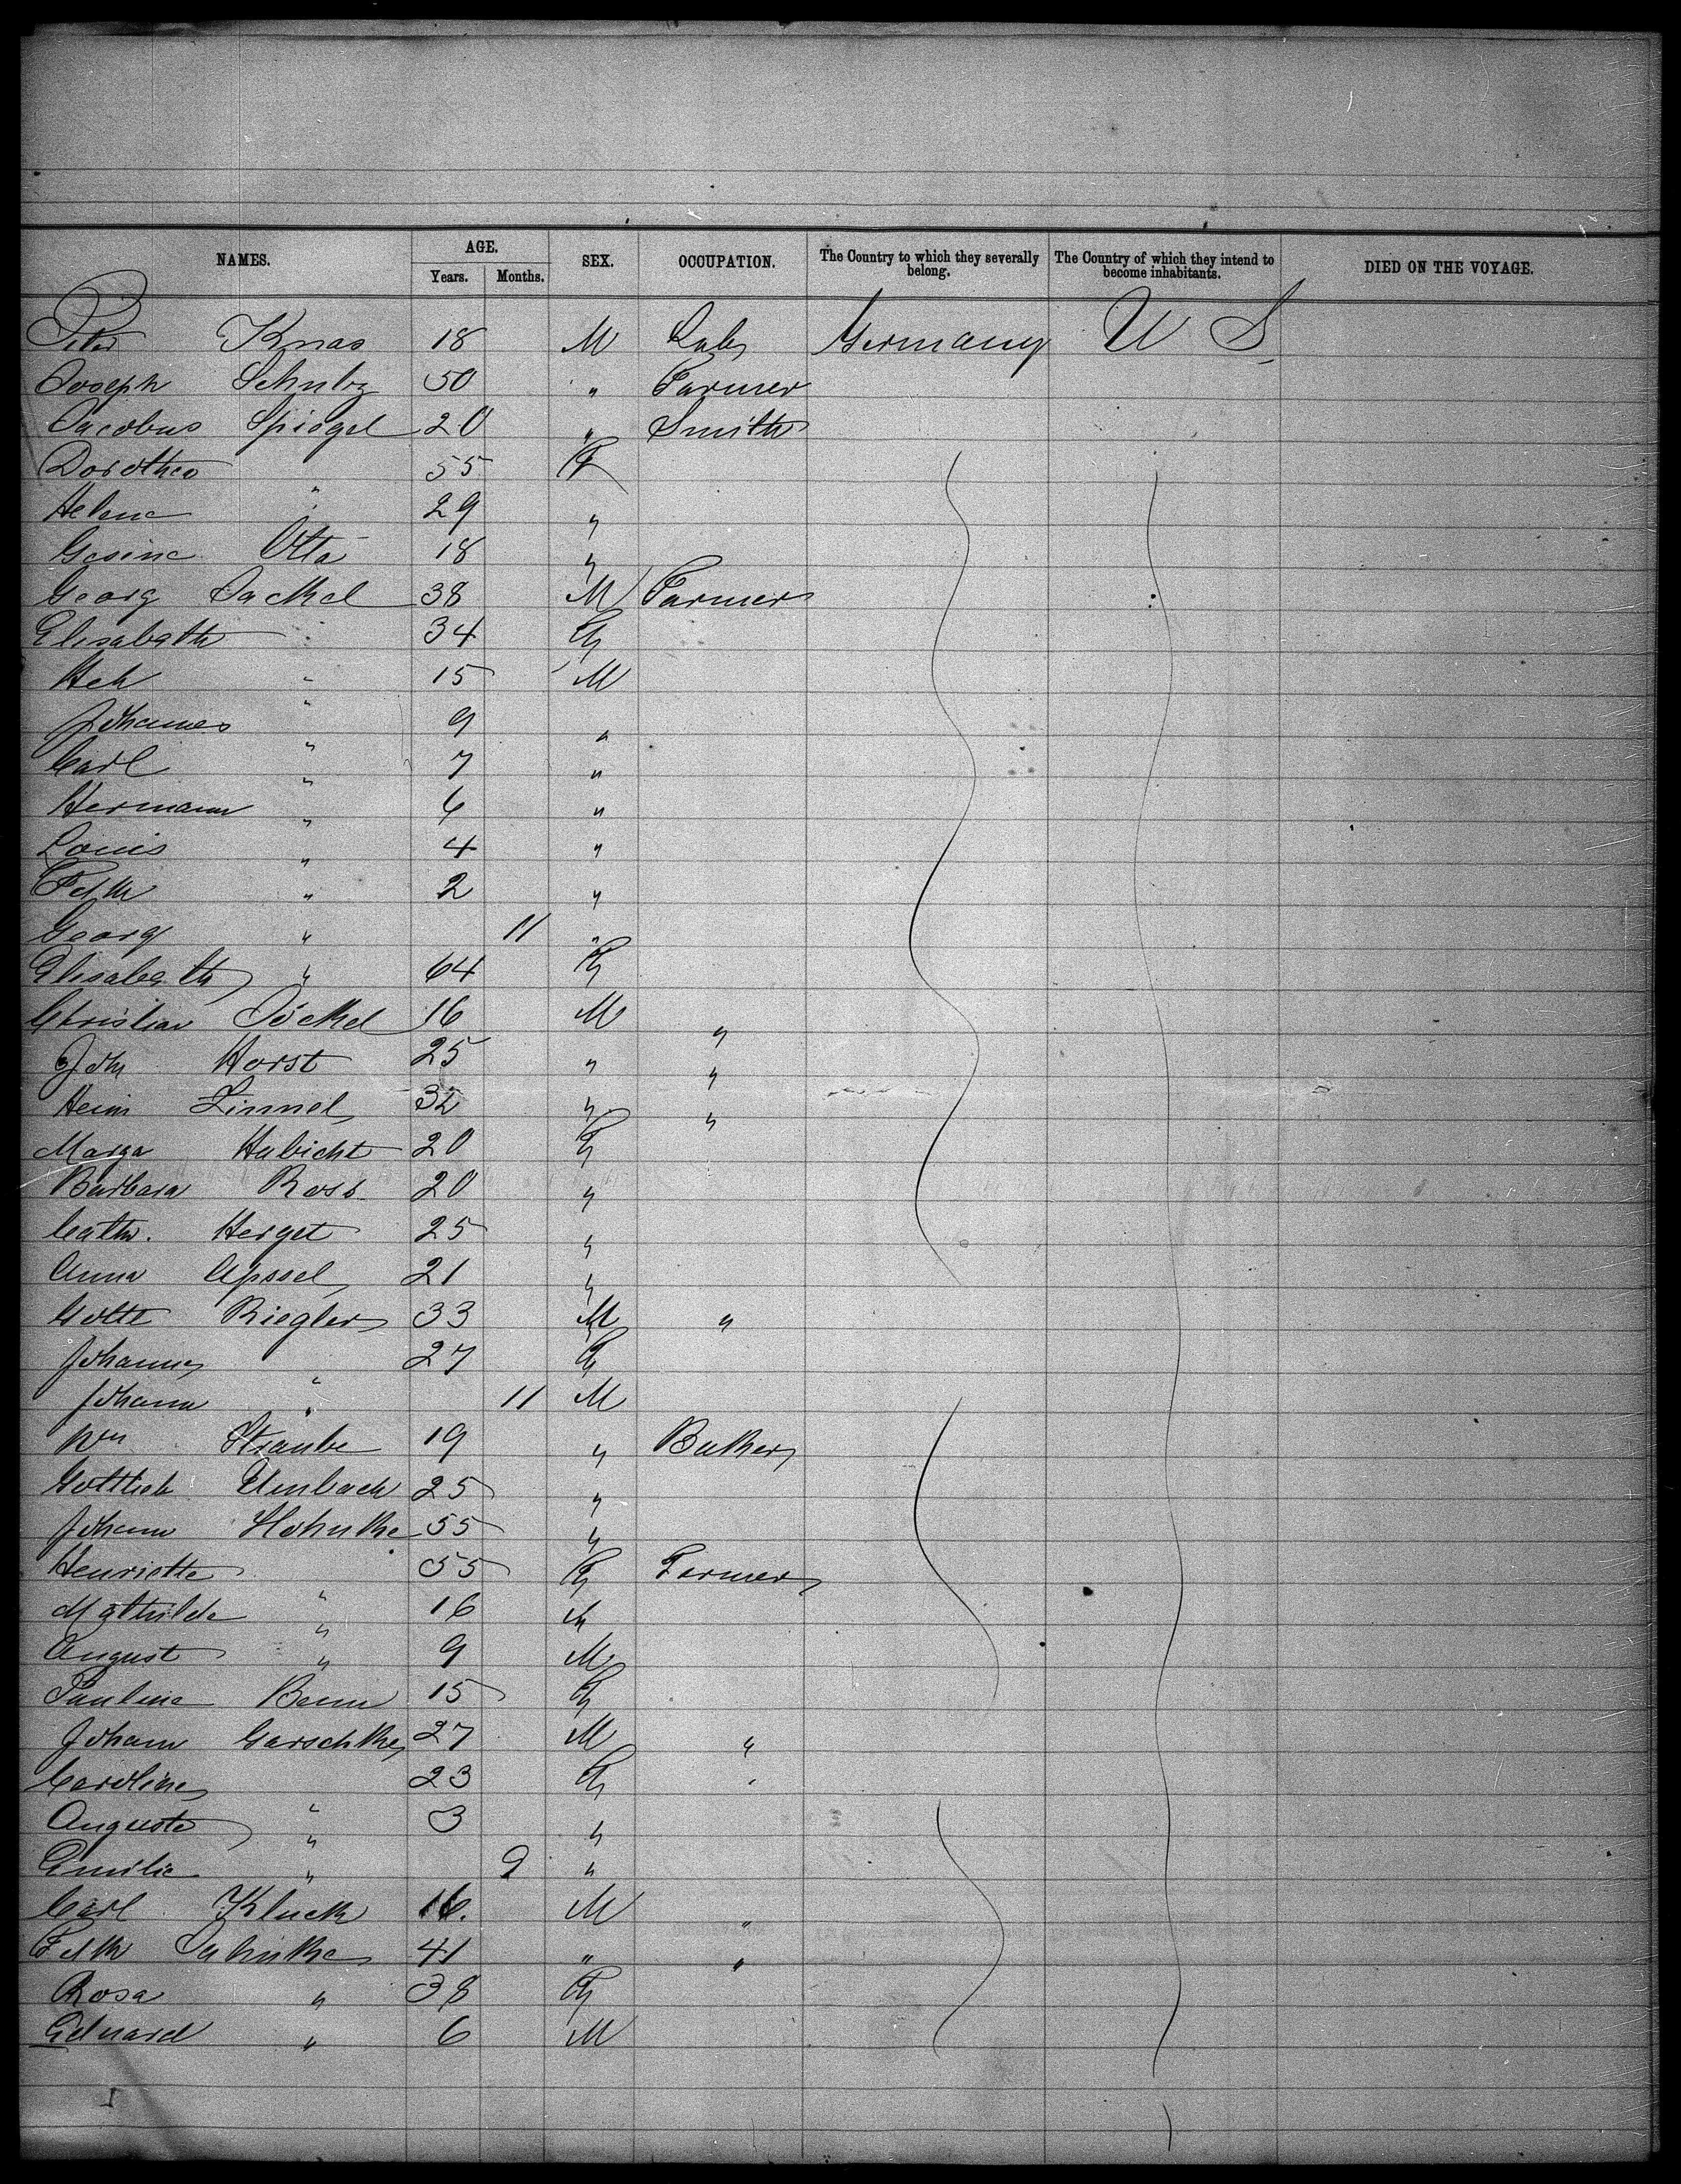 NAMES. AGE. SEX. OCCUPATION. The Country to which they severally belong. The Country of which they intend to become inhabitants. DIED ON THE VOYAGE.
Years. Months.
Peter Knas 18 M Lab Germany U S
Joseph Schulz 50 " Farmer
Jacobus Spiegel 20 " Smith
Dorothea " 55 F
Helene " 29 "
Gesine Otta 18 "
Georg Jackel 38 M Farmer
Elisabeth " 34 F
Hch " 15 M
Johannes " 9 "
Carl " 7 "
Hermann " 6 "
Louis " 4 "
Fdk " 2 "
Georg " 11 "
Elisabeth " 64 F
Christian Jöckel 16 M "
Joh Horst 25 " "
Heinr Zimmel 32 " "
Marga Habicht 20 F
Barbara Ross 20 "
Cath. Herget 25 "
Anna Apssel 21 "
Gottl Riegler 33 M "
Johanna " 27 F
Johann " 11 M
Wm Straube 19 " Baker
Gottlieb Umbach 25 "
Johann Hohnke 55 "
Henriette " 55 F Farmer
Mathilde " 16 "
August " 9 M
Pauline Benn 15 F
Johann Garschke 27 M "
Caroline " 23 F "
Auguste " 3 "
Emilie " 9 "
Carl Kluck 16. M "
Fdk Jahnke 41 " "
Rosa " 38 F
Eduard " 6 M